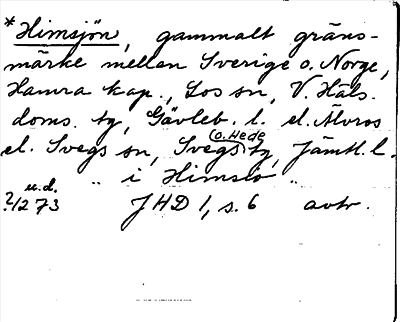 *Himsjön, gammalt gräns-
märke mellan Sverige o. Norge,
Hamra kap., Los sn, V. Häls.
doms. tg, Gävleb. l. el. Älvros
el. Svegs sn, Svegs o. Hede tg, Jämtl. l.
" i Himslo "
u.d.
?/2 73 JHD 1, s. 6 avtr.